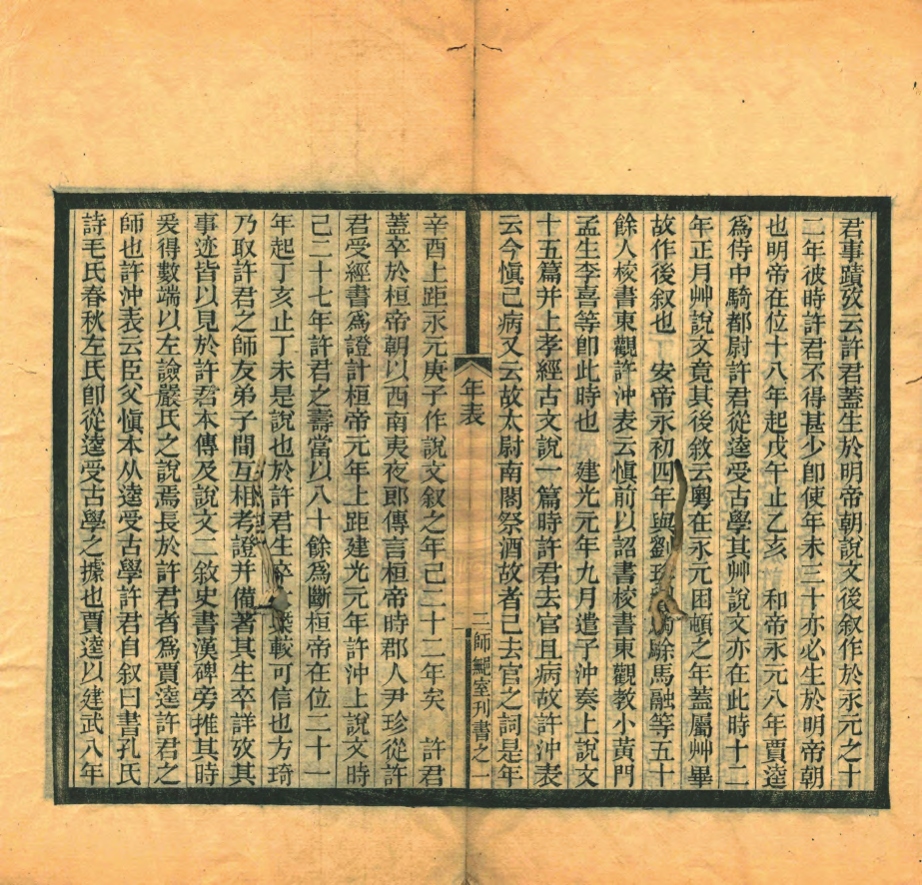 君事蹟攷云許君蓋生於明帝朝說文後叙作於永元之十
二年彼時許君不得甚少卽使年未三十亦必生於明帝朝
也明帝在位十八年起戊午止乙亥　和帝永元八年賈逵
爲侍中騎都尉許君從逵受古學其艸說文亦在此時十二
年正月艸說文竟其後敘云粵在永元困頓之年蓋屬艸畢
故作後叙也　安帝永初四年與劉　駼馬融等五十
餘人校書東觀許沖表云愼前以詔書校書東觀教小黃門
孟生李喜等卽此時也　建光元年九月遣子沖奏上說文
十五篇并上孝經古文說一篇時許君去官且病故許沖表
云今愼已病又云故太尉南閣祭酒故者已去官之詞是年
年表
二
師𨚍室刊書之一
辛酉上距永元庚子作說文叙之年已二十二年矣　許君
蓋卒於桓帝朝以西南夷夜郎傳言桓帝時郡人尹珍從許
君受經書爲證計桓帝元年上距建光元年許沖上說文時
己二十七年許君之壽當以八十餘爲斷桓帝在位二十一
年起丁亥止丁未是說也於許君生卒　榘載可信也方琦
乃取許君之師友弟子間互相考證并備著其生卒詳攷其
事迹皆以見於許君本傳及說文二敘史書漢碑旁推其時
爰得數端以左諗嚴氏之說焉長於許君者爲賈逵許君之
師也許沖表云臣父愼本从逵受古學許君自叙曰書孔氏
詩毛氏春秋左氏卽從逵受古學之據也賈逵以建武八年